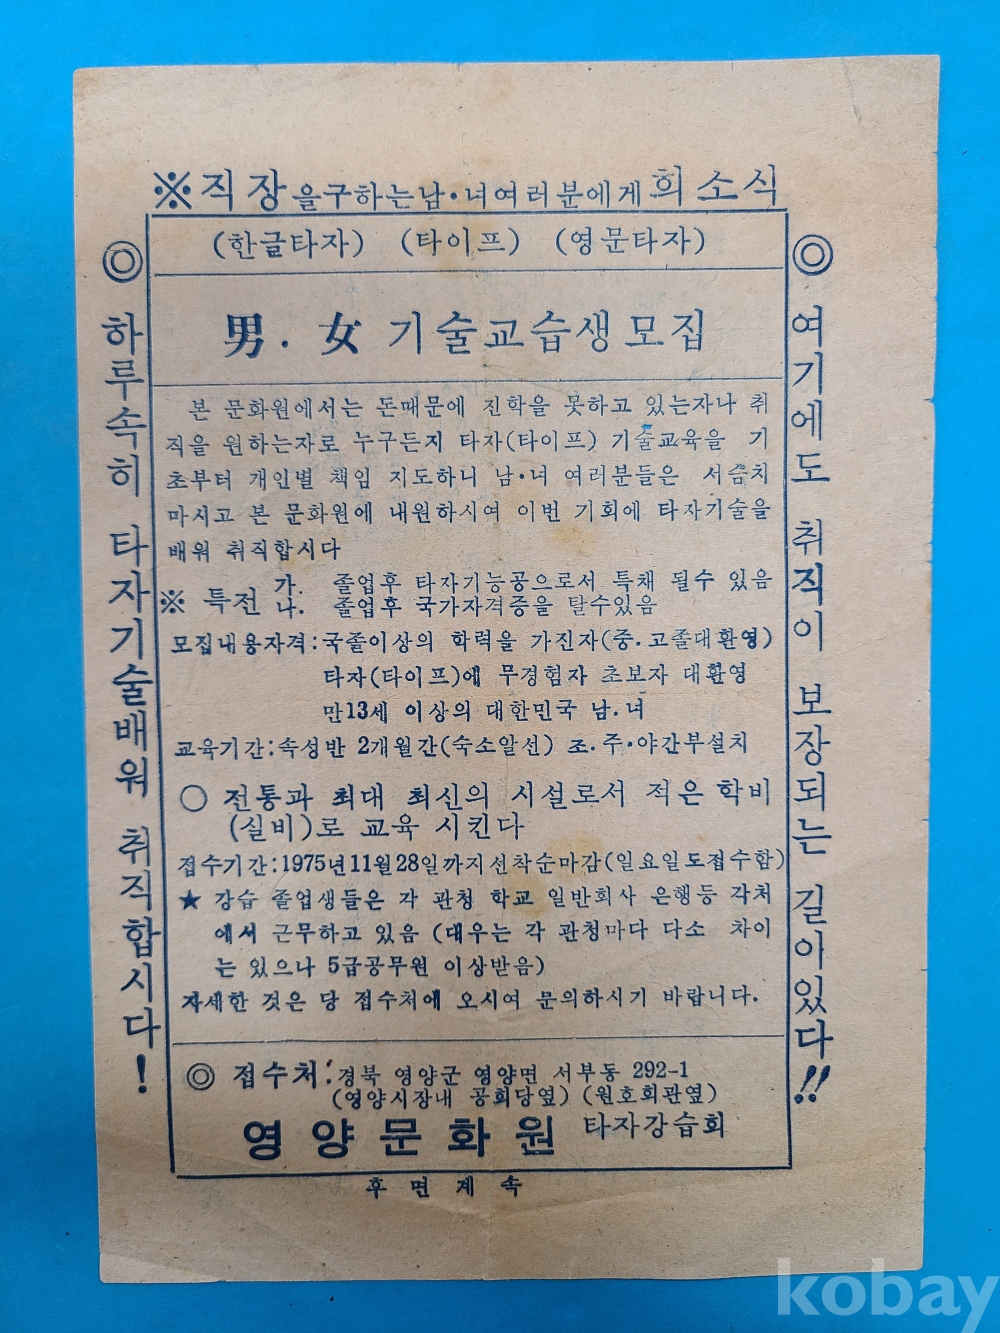 ※직장을구하는남·녀여러분에게희소식
(한글타자) (타이프) (영문타자)
男. 女 기술교습생모집
본 문화원에서는 돈때문에 진학을 못하고 있는자나 취
직을 원하는자로 누구든지 타자(타이프) 기술교육을 기
초부터 개인별 책임 지도하니 남·녀 여러분들은 서슴치
마시고 본 문화원에 내원하시여 이번 기회에 타자기술을
배워 취직합시다
※ 특전 가. 졸업후 타자기능공으로서 특채 될수 있음
나. 졸업후 국가자격증을 탈수있음
모집내용자격:국졸이상의 학력을 가진자(중.고졸대환영)
타자(타이프)에 무경험자 초보자 대환영
만13세 이상의 대한민국 남.녀
교육기간:속성반 2개월간(숙소알선) 조.주·야간부설치
○ 전통과 최대 최신의 시설로서 적은 학비
(실비)로 교육 시킨다
접수기간:1975년11월28일까지선착순마감(일요일도접수함)
★ 강습 졸업생들은 각 관청 학교 일반회사 은행등 각처
에서 근무하고 있음 (대우는 각 관청마다 다소 차이
는 있으나 5급공무원 이상받음)
자세한 것은 당 접수처에 오시여 문의하시기 바랍니다.
◎ 접수처:경북 영양군 영양면 서부동 292-1
(영양시장내 공회당옆) (원호회관옆)
영양문화원 타자강습회
후면계속
◎ 하루속히 타자기술배워 취직합시다!
◎ 여기에도 취직이 보장되는 길이있다!!
kobay